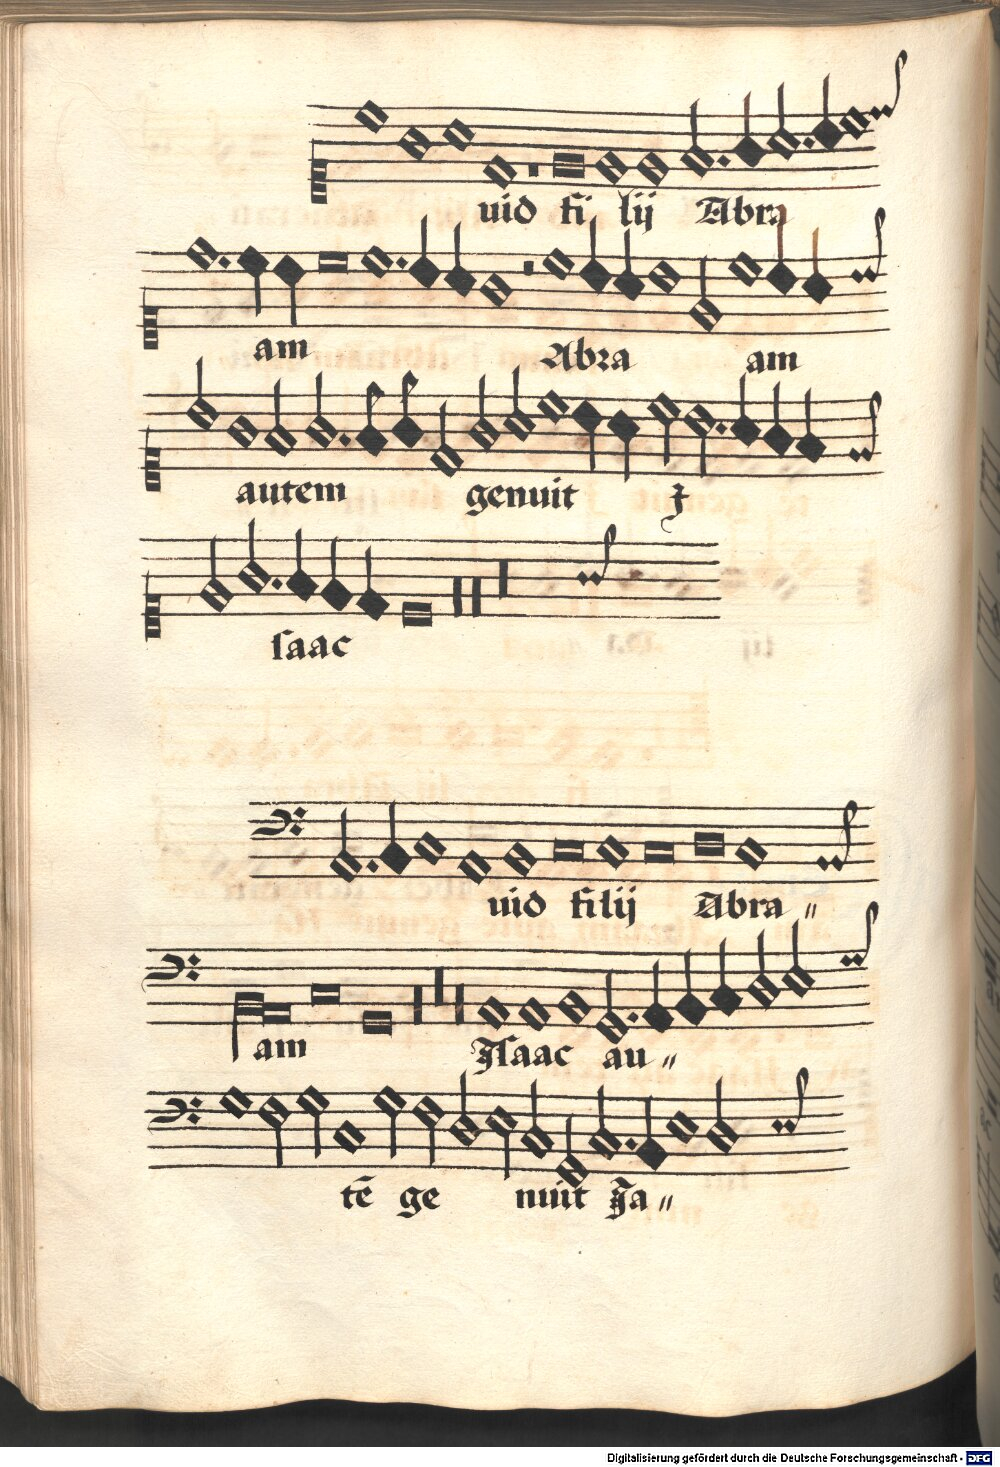 uid fi lij Abra
am Abra am
autem genuit J
saac
uid filij Abra〃
am Jsaac au〃
tē ge nuit Ja〃
Digitalisierung gefördert durch die Deutsche Forschungsgemeinschaft - DFG